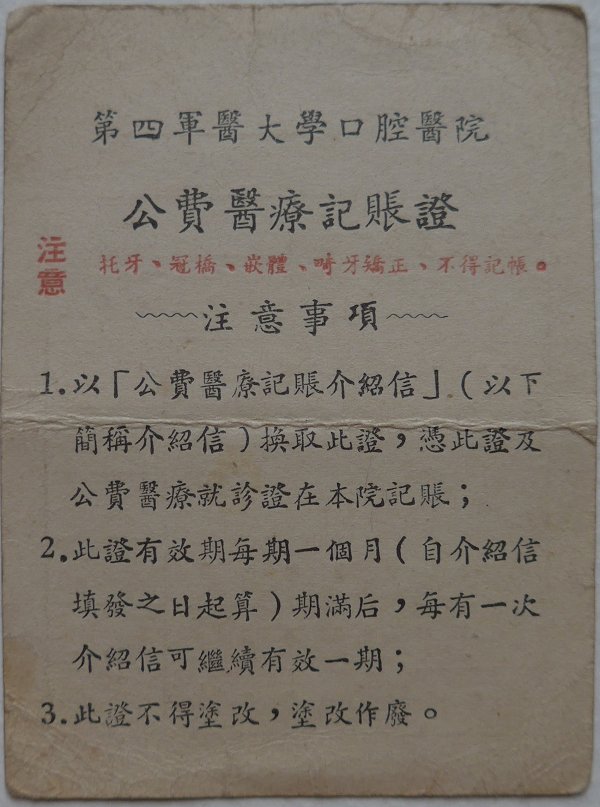 第四軍醫大學口腔醫院
公費醫療記賬證
注意
托牙、冠橋、嵌體、畸牙矯正、不得記帳。
﹏﹏注意事項﹏﹏
1.以「公費醫療記賬介紹信」(以下
簡稱介紹信)換取此證，憑此證及
公費醫療就診證在本院記賬；
2.此證有效期每期一個月(自介紹信
填發之日起算)期滿后，每有一次
介紹信可繼續有效一期；
3.此證不得塗改，塗改作廢。